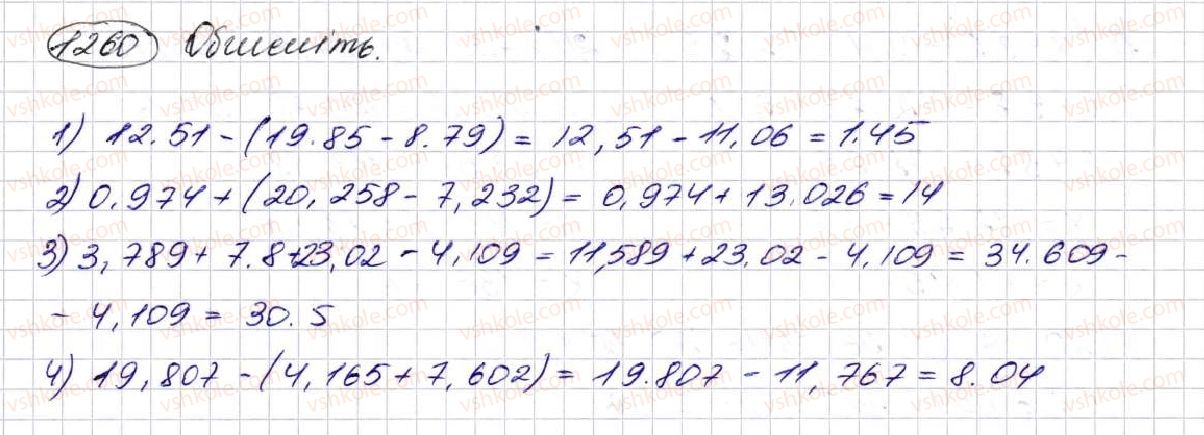 1260 Обчисліть.
1) 12.51 - (19.85 - 8.79) = 12,51 - 11,06 = 1.45
2) 0.974 + (20,258 - 7,232) = 0,974 + 13.026 = 14
3) 3,789 + 7.8 + 23,02 - 4,109 = 11,589 + 23,02 - 4,109 = 34.609 -
- 4,109 = 30.5
4) 19,807 - (4,165 + 7,602) = 19.807 - 11,767 = 8.04